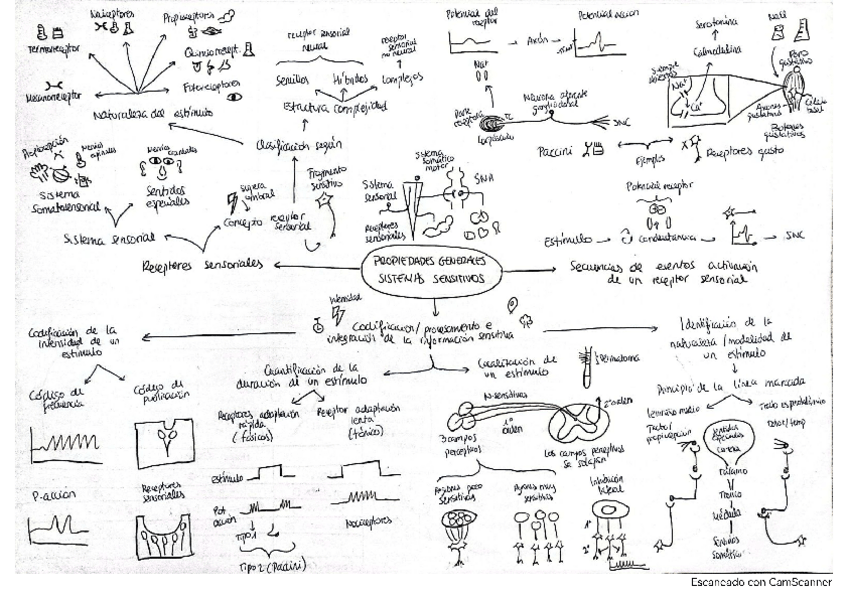 Termoreceptor
Nociceptores
Propioceptores
Quimiorecept.
Fotoreceptores
Mecanoreceptor
Naturaleza del estímulo
receptor sensorial
neural
receptor
sensorial
no neural
Sencillos
Híbridos
Complejos
Estructura complejidad
Clasificación según
Potencial del
receptor
Axón
Potencial acción
Na+
Neurona aferente
ganglio dorsal
SNC
Paccini
Ejemplos
Receptores gusto
Serotonina
Calmodulina
NaCl
Poro
gustativo
Siempre
abiertos
Na+
Ca+
Axones
gustativos
Célula
basal
Botones
gustativos
Propiocepción
Nervios
espinales
Nervios
craneales
Sistema
Somatosensorial
Sentidos
especiales
Sistema sensorial
Supera
umbral
Concepto
receptor
sensorial
Fragmento
sensitivo
Receptores sensoriales
Sistema
sensorial
Sistema
somático
motor
SNA
Receptores
sensoriales
PROPIEDADES GENERALES
SISTEMAS SENSITIVOS
Potencial receptor
Estímulo
Conductancia
SNC
Secuencias de eventos activación
de un receptor sensorial
Intensidad
Codificación/procesamiento e
integración de la información sensitiva
Codificación de la
intensidad de un
estímulo
Código de
frecuencia
Código de
población
P. acción
Receptores
sensoriales
Cuantificación de la
duración de un estímulo
Receptores adaptación
rápida
(fásicos)
Receptor adaptación
lenta
(tónico)
Estímulo
Pot
acción
Tipo 1
Tipo 2 (Pacini)
Nociceptores
Localización de
un estímulo
Dermatoma
N. sensitivas
1º
orden
2º orden
3 campos
perceptivos
Los campos perceptivos
se solapan
Regiones poco
sensitivas
Regiones muy
sensitivas
Inhibición
lateral
Identificación de la
naturaleza/modalidad de
un estímulo
Principio de la línea marcada
Lemnisco medio
Tacto/
propiocepción
Tracto espinotalámico
Dolor/temp
Sentidos
especiales
Corteza
Tálamo
Tronco
Médula
Sentidos
somáticos
Escaneado con CamScanner